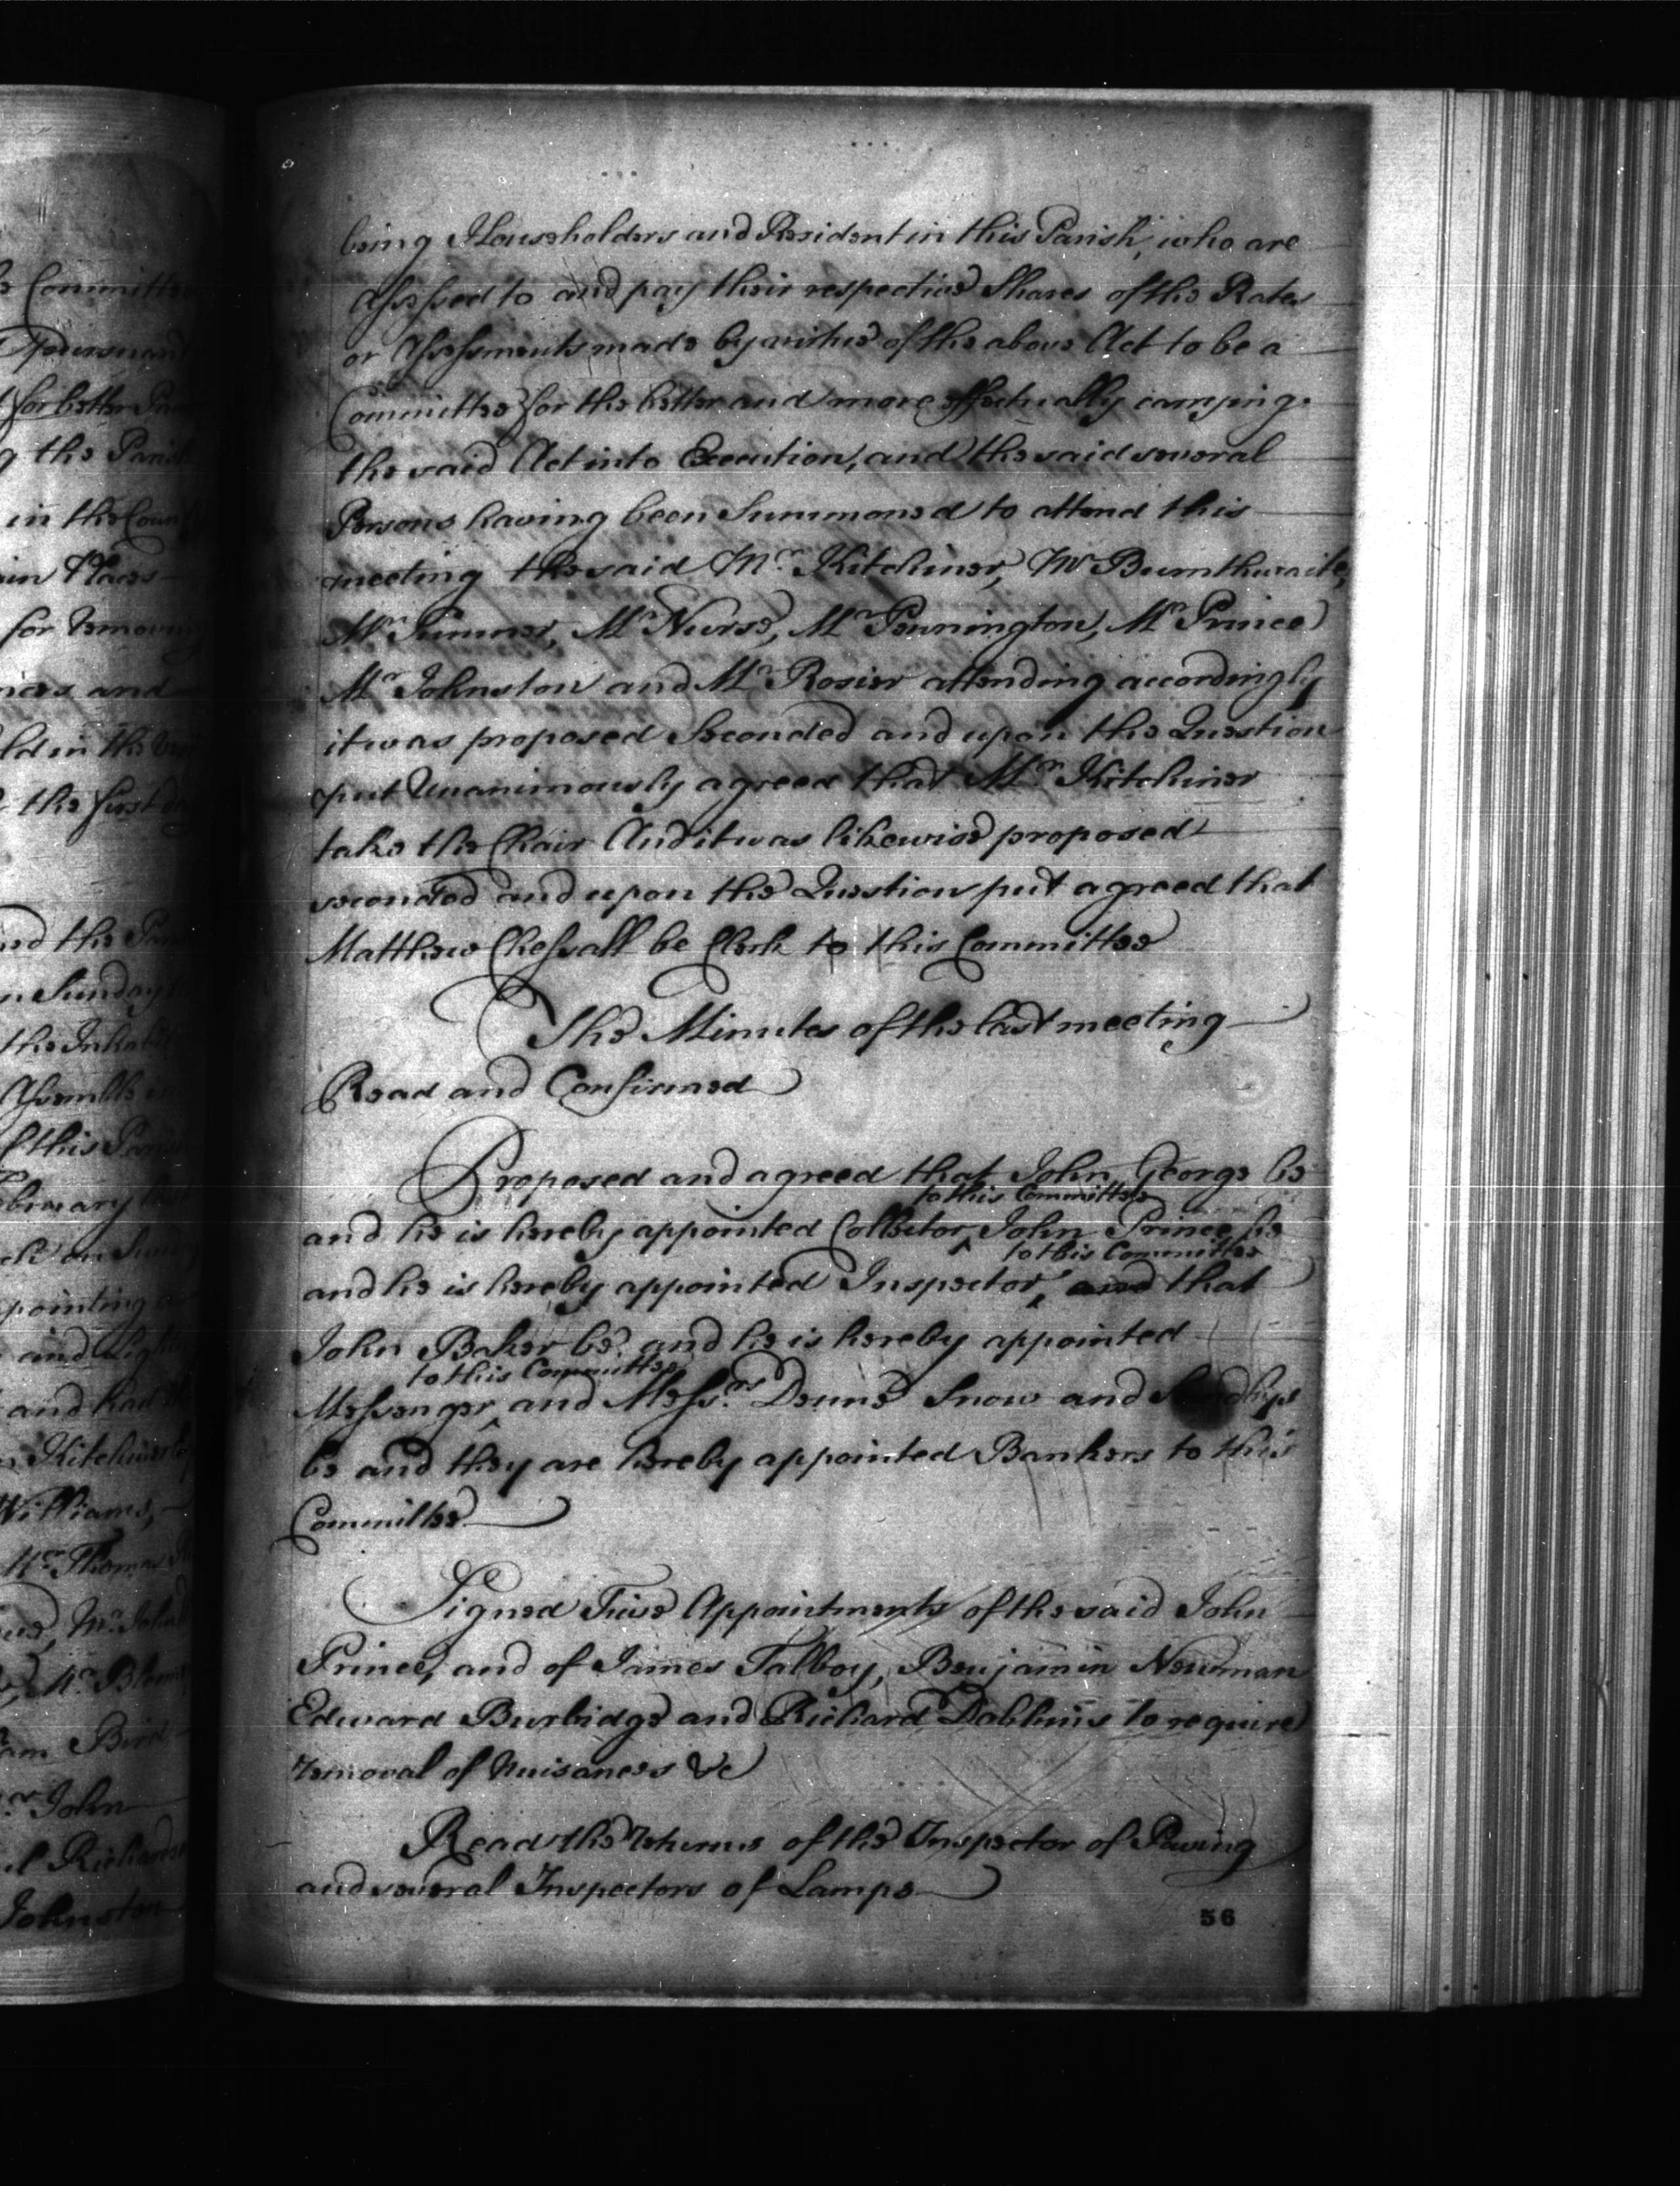 being Householders and Resident in this Parish, who are
Assessed to and pay their respective Shares of the Rates
or Assessments made by virtue of the above Act to be a
Committee for the better and more effectually carrying
the said Act into Execution, and the said several
Persons having been Summoned to attend this
meeting the said Mr. Kitchiner, Mr Burnthwaite,
Mr Sumner, Mr Nurse, Mr Pennington, Mr Prince
Mr Johnston and Mr Rosier attending accordingly
it was proposed Seconded and upon the Question
put Unanimously agreed that Mr Kitchiner
take the Chair And it was likewise proposed
seconded and upon the Question put agreed that
Matthew Chessall be Clerk to this Committee
The Minutes of the last meeting
Read and Confirmed
Proposed and agreed that John George be
to this Committee
and he is hereby appointed Collector, John Prince be
to this Committee
and he is hereby appointed Inspector, and that
John Baker be, and he is hereby appointed
to this Committee
Messenger, and Messrs. Denne Snow and
be and they are hereby appointed Bankers to this
Committee
Signed Five Appointments of the said John
Prince, and of James Talboy, Benjamin Newman
Edward Burbidge and Richard Dobbins to require
removal of Nuisances &c
Read the returns of the Inspector of Paving
and several Inspectors of Lamps
56
Committee
for better
g the Parish
in the
Places
for removing
and
ld in the
the first
nd the
Sunday
the
Assemble
f this
on
pointing
and
and had
Kitchiner
Williams,
Mr. Thomas
Mr.
Mr.
Bird
John
Johnston